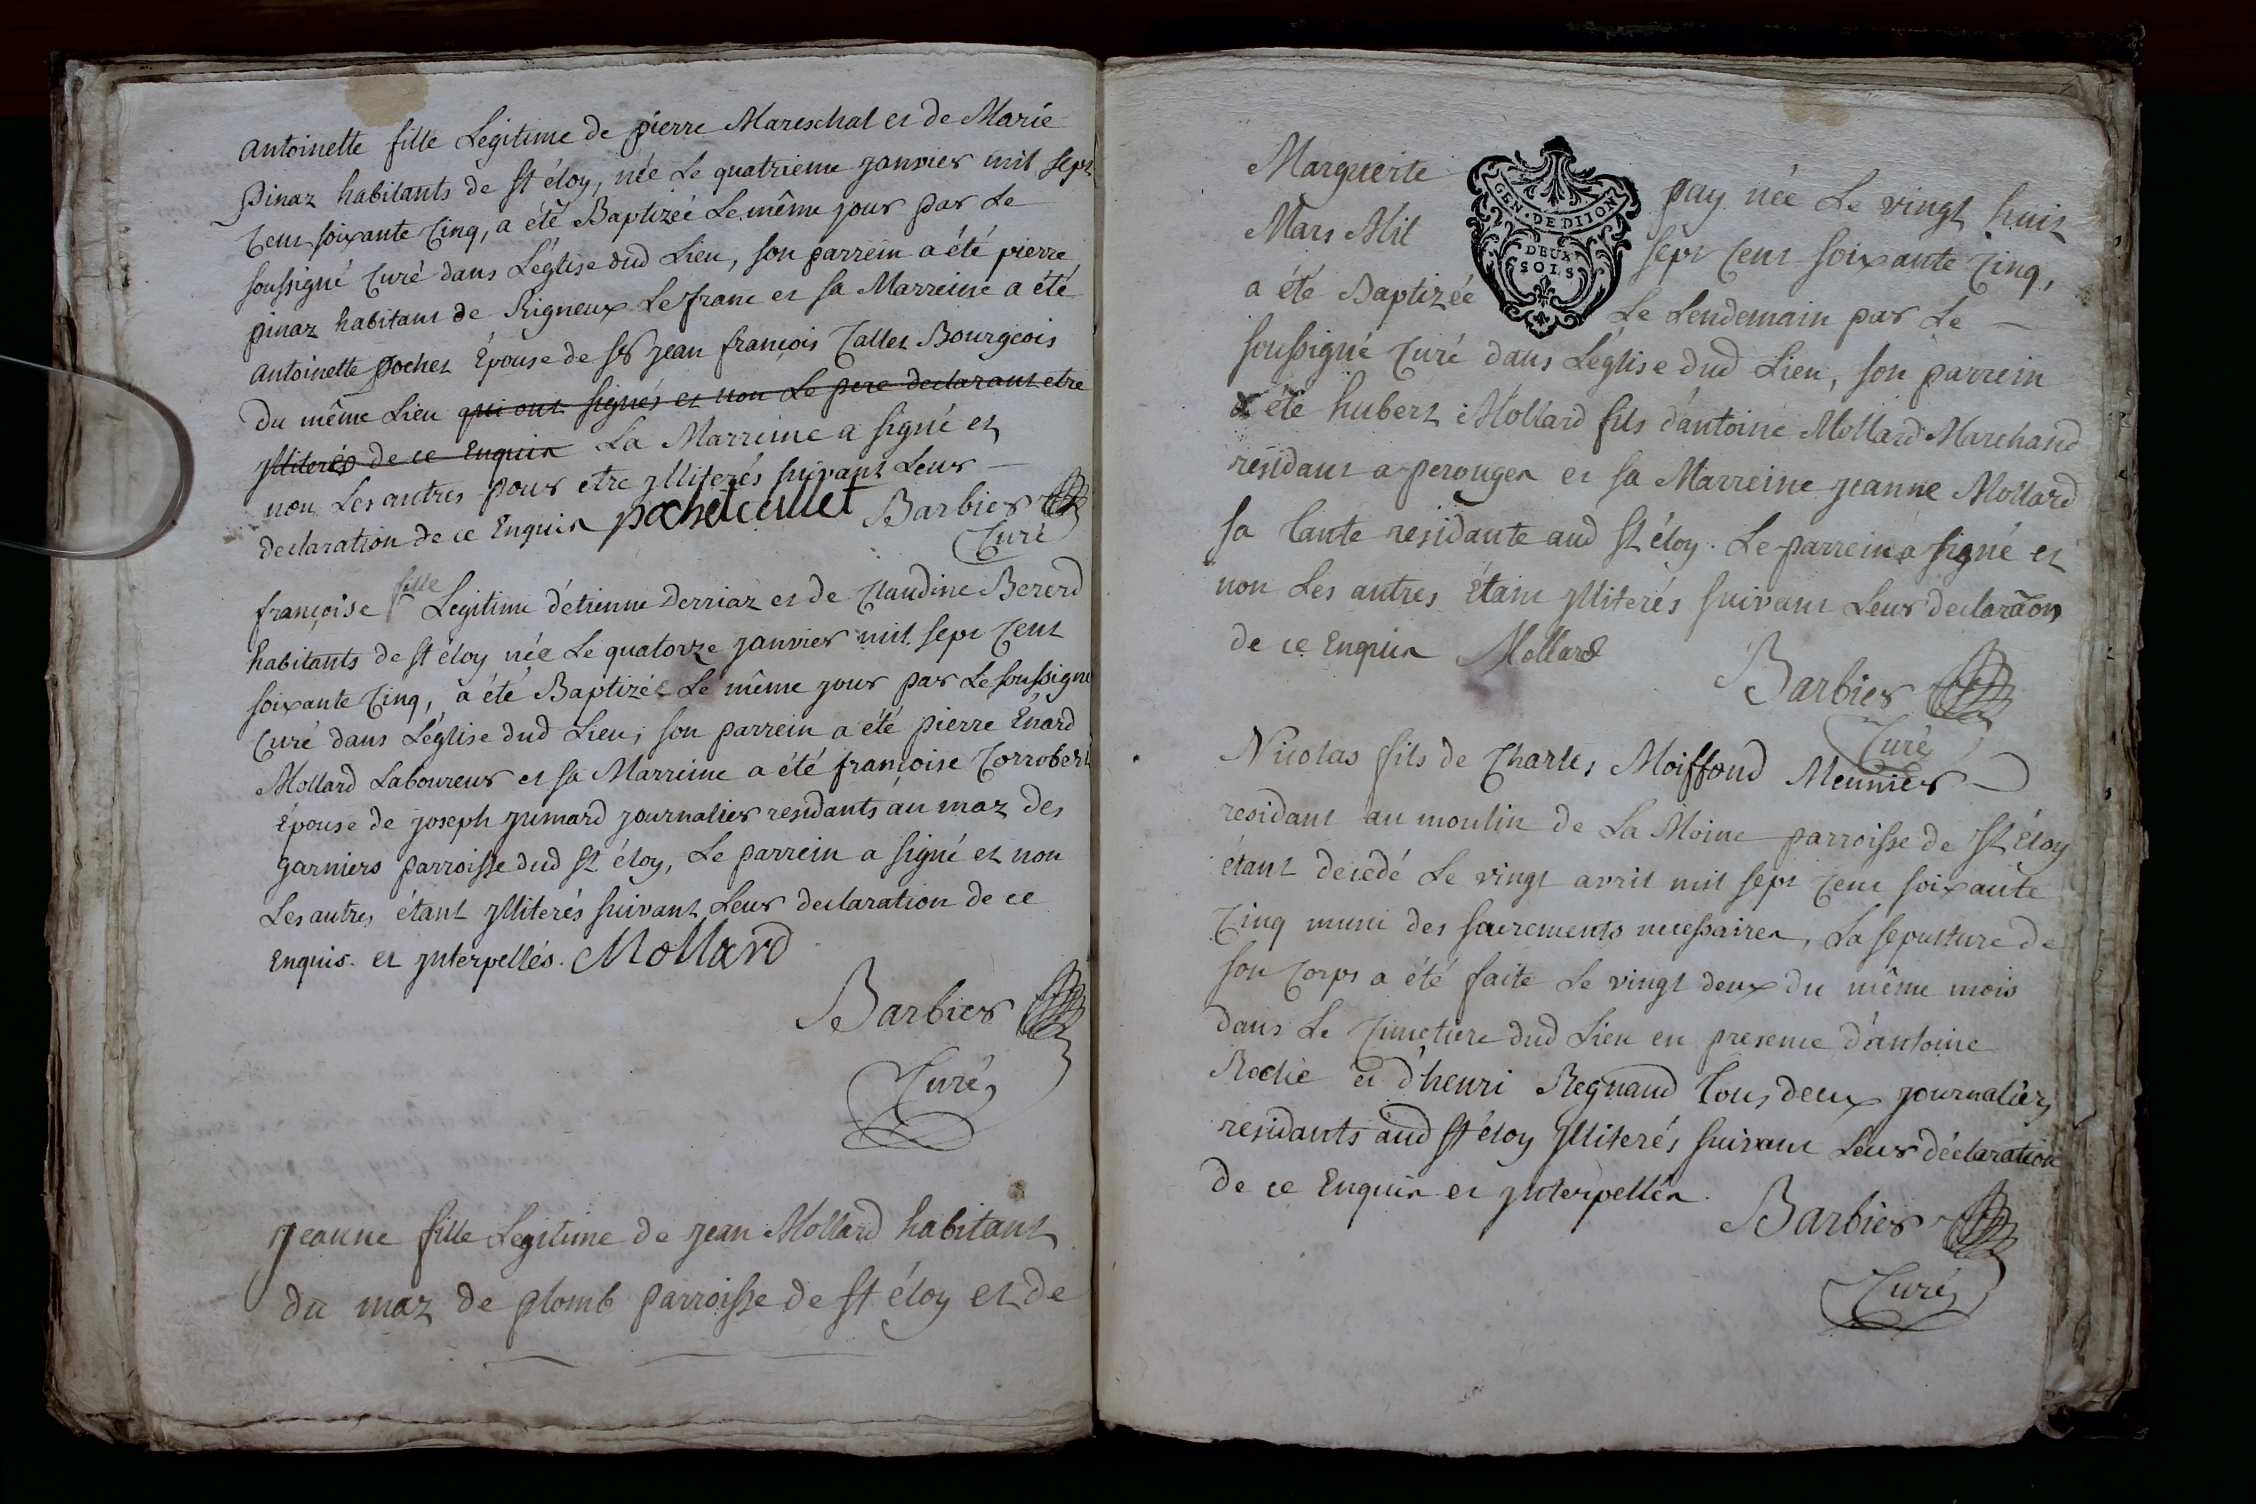 antoinette fille Légitime de pierre Mareschal et de Marie
pinaz habitants de St éloy, née Le quatrieme janvier mil sept
Cent soixante Cinq, a été Baptizéé Le même jour par Le
soussigné Curé dans L'église dud Lieu, son parrein a été pierre
pinaz habitant de Rigneux Le franc et sa Marreine a été
antoinette pochet Épouse de Sr jean françois Callet Bourgeois
du même Lieu qui ont signés et non Le pere declarant etre
jlliterés de ce Enquis La Marreine a signé et
non Les autres pour etre jlliterés suivant Leur
declaration de ce Enquis pochet callet Barbier
Curé
fille
françoise Legitime d'étienne Derriaz et de Claudine Bererd
habitants de St éloy née Le quatorze janvier mil sept Cent
soixante Cinq, a été Baptizéé Le même jour par Le soussigné
Curé dans L'église dud Lieu, son parrein a été pierre Enard
Mollard Laboureur et sa Marreine a été françoise Corrobert
Épouse de joseph jumard journalier residants au maz des
garniers parroisse dud St éloy, Le parrein a signé et non
Les autres étant jlliterés suivant Leur declaration de ce
Enquis. et jnterpellés. Mollard
Barbier
Curé
jeanne fille Legitime de jean Mollard habitant
du maz de plomb parroisse de St éloy et de
GEN·DE DIION
DEUX
SOLS
Marguerite pay née Le vingt huit
Mars Mil sept Cent soixante Cinq,
a été Baptizéé Le Lendemain par Le
soussigné Curé dans L'église dud Lieu, son parrein
a été hubert Mollard fils d'antoine Mollard Marchand
residant a perouges et sa Marreine jeanne Mollard
sa tante residante aud St éloy. Le parrein a signé et
non Les autres étant jlliterés suivant Leur declaraon
de ce Enquis Mollard
Barbier
Curé
Nicolas fils de Charles Moiffond Meunier
residant au moulin de La Moine parroisse de St Éloy
étant decedé Le vingt avril mil sept Cent soixante
Cinq muni des sacrements necessaires, La sepulture de
son Corps a été faite Le vingt deux du même mois
dans Le Cimetiere dud Lieu en presence d'antoine
Rodie et d'henri Regnaud tous deux journaliers
residants aud St éloy jlliterés suivant Leur déclaration
de ce Enquis et jnterpellés.
Barbier
Curé